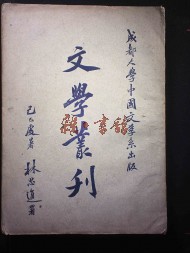 成都大學中國文學系出版
文學叢刊
己巳處暑
林思進署